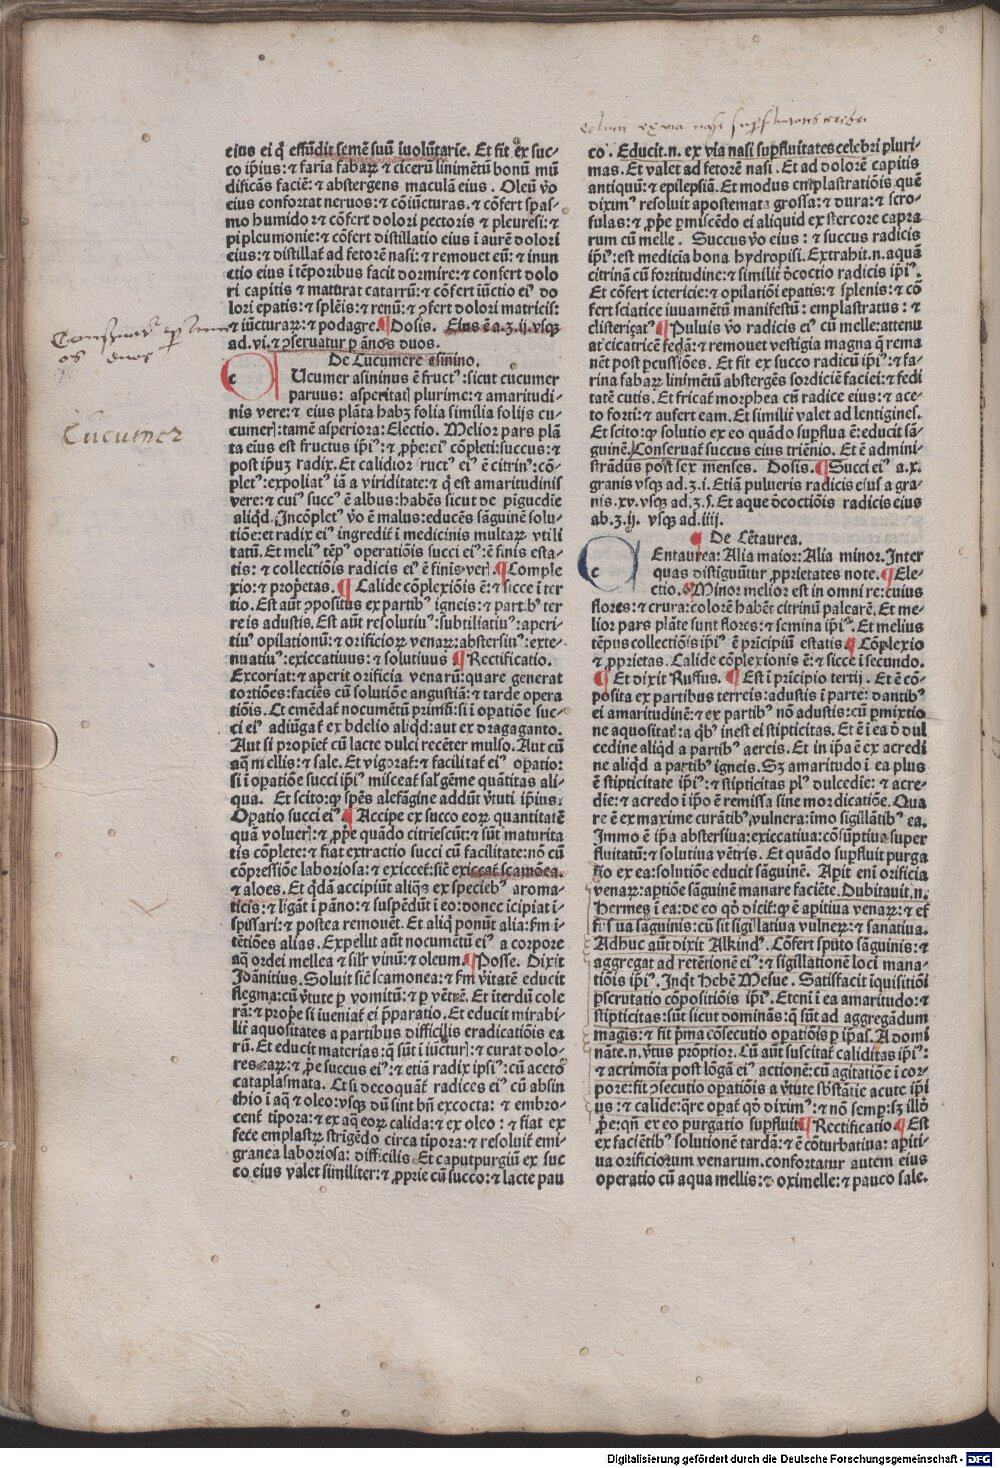 eius ei q̄ effūdit semē suū īvolūtarie. Et fit ex suc-
co ip̄ius: ⁊ faria fabaꝝ ⁊ ciceru linimētū bonū mū
dificās faciē: ⁊ abstergens maculā eius. Oleū v̄o
eius confortat neruos: ⁊ cōiūcturas. ⁊ cōfert spas-
mo humido ⁊ cōfert dolori pectoris ⁊ pleuresi: ⁊
pipleumonie: ⁊ cōfert distillatio eius ī aurē dolori
eius: ⁊ distillat̄ ad fetorē nasi: ⁊ remouet eū: ⁊ inun
ctio eius ī tēporibus facit dormire: ⁊ confert dolo
ri capitis ⁊ maturat catarrū: ⁊ cōfert iūctio eiꝰ do
lori epatis: ⁊ splēis: ⁊ renū: ⁊ ꝯfert dolori matricis:
⁊ iūcturaꝝ: ⁊ podagre. ¶ Dosis. Eius ē a.ʒ.ij. vsqꝫ
ad. vi. ⁊ ꝯseruatur p̄ ānos duos.
De Cucumere asinino.
CUcumer asininus ē fructꝰ: sicut cucumer
paruus: asperitatꝭ plurime: ⁊ amaritudi-
nis vere: ⁊ eius plāta habꝫ folia similia folijs cu-
cumerꝭ: tamē asperiora: Electio. Melior pars plā
ta eius est fructus ip̄iꝰ: ⁊ ꝓpe: eiꝰ cōpleti: succus: ⁊
post ip̄uꝫ radix. Et calidior fructꝰ eiꝰ ē citrinꝰ: cō-
pletꝰ: expoliatꝰ iā a viriditate: ⁊ q̄ est amaritudinis
vere: ⁊ cuiꝰ succꝰ ē albus: habēs sicut de pīguedie
aliqd. Incōpletꝰ v̄o ē malus: educēs sāguinē solu-
tiōe: ⁊ radix eiꝰ ingredit̄ ī medicinis multaꝝ vtili
tatū. Et meliꝰ tēpꝰ operatiōis succi eiꝰ: ē finis esta-
tis: ⁊ collectiōis radicis eiꝰ ē finis verꝭ. ¶ Comple
xio: ⁊ prop̄etas. ¶ Calide cōplexiōis ē: ⁊ sicce ī ter
tio. Est aūt ꝯpositus ex partibꝰ igneis: ⁊ part.bꝰ ter
reis adustis. Est aūt resolutiuꝰ: subtiliatiuꝰ: aperi-
tiuꝰ opilationū: ⁊ orificioꝝ venaꝝ: abstersiuꝰ: exte-
nuatiuꝰ: exiccatiuus: ⁊ solutiuus ¶ Rectificatio.
Excoriat: ⁊ aperit orificia venarū: quare generat
tortiōes: faciēs cū solutiōe angustiā: ⁊ tarde opera
tiōis. Et emēdat̄ nocumētū primū: si ī oꝑatiōe suc-
ci eiꝰ adiūgat̄ ex bdelio aliqd: aut ex dragaganto.
Aut si propiet̄ cū lacte dulci recēter mulso. Aut cū
aq̄ mellis: ⁊ sale. Et vigorat̄: ⁊ facilitat̄ eiꝰ oꝑatio:
si ī oꝑatiōe succi ip̄iꝰ misceat̄ salꝭ gēme quātitas ali-
qua. Et scito: ꝙ spēs alefāgine addūt v̄tuti ip̄ius.
Oꝑatio succi eiꝰ. ¶ Accipe ex succo eoꝝ quantitatē
quā volueꝭ: ⁊ ꝓpe quādo citriescūt: ⁊ sūt maturita
tis cōplete: ⁊ fiat extractio succi cū facilitate: nō cū
cōpressiōe laboriosa: ⁊ exiccet̄: sic̄ exiccat̄ scamōea.
⁊ aloes. Et q̄dā accipiūt aliqd̄ ex speciebꝰ aroma-
ticis: ⁊ ligāt ī pāno: ⁊ suspēdūt ī eo: donec īcipiat ī-
spissari: ⁊ postea remouēt. Et aliqͥ ponūt alia: ẜm ī-
tētiōes alias. Expellit aūt nocumētū eiꝰ a corpore
aq̄ ordei mellea ⁊ silr̄ vinū: ⁊ oleum. ¶ Posse. Dixit
Joānitius. Soluit sic̄ scamonea: ⁊ ẜm v̄itatē educit
flegma: cū v̄tute p vomitū: ⁊ p vētrē. Et iterdū cole
rā: ⁊ prop̄e si iueniat̄ ei p̄paratio. Et educit mirabi-
lit̄ aquositates a partibus difficilis eradicatiōis ea
rū. Et educit materias: q̄ sūt ī iūcturꝭ: ⁊ curat dolo-
res eaꝝ: ⁊ ꝓpe succus eiꝰ: ⁊ etiā radix ipsiꝰ: cū aceto
cataplasmata. Et si decoquāt̄ radices eiꝰ cū absin
thio ī aq̄ ⁊ oleo: vsqꝫ dū sint bn̄ excocta: ⁊ embro-
cent̄ tīpora: ⁊ ex aq̄ eoꝝ calida: ⁊ ex oleo: ⁊ fiat ex
fece emplastꝝ strigēdo circa tīpora: ⁊ resoluit emi-
granea laboriosa: difficilis Et caputpurgiū ex suc
co eius valet similiter: ⁊ ꝓprie cū succo: ⁊ lacte pau
co. Educit.n. ex via nasi supfluitates celebri pluri-
mas. Et valet ad fetorē nasi. Et ad dolorē capitis
antiquū: ⁊ epilepsiā. Et modus emplastratiōis quē
diximꝰ resoluit apostemata grossa: ⁊ dura: ⁊ scro-
fulas: ⁊ ꝓpe pmiscēdo ei aliquid ex stercore capra
rum cū melle. Succus v̄o eius: ⁊ succus radicis
ip̄iꝰ: est medicia bona hydropisi. Extrahit.n. aquā
citrinā cū fortitudine: ⁊ similit̄ d̄coctio radicis ip̄iꝰ.
Et cōfert ictericie: ⁊ opilatiōi epatis: ⁊ splenis: ⁊ cō
fert sciatice iuuamētū manifestū: emplastratus: ⁊
clisterigatꝰ ¶ Puluis v̄o radicis eiꝰ cū melle: attenu
at cicatricē fedā: ⁊ remouet vestigia magna q̄ rema
nēt post pcussiōes. Et fit ex succo radicū ip̄iꝰ: ⁊ fa-
rina fabaꝝ linimētū abstergēs sordiciē faciei: ⁊ fedi
tatē cutis. Et fricat̄ morphea cū radice eius: ⁊ ace-
to forti: ⁊ aufert eam. Et similit̄ valet ad lentigines.
Et scito: ꝙ solutio ex eo quādo supflua ē: educit sā-
guinē. Conseruat̄ succus eius triēnio. Et ē admini-
strādus post sex menses. Dosis. ¶ Succi eiꝰ a.x.
granis vsqꝫ ad.ʒ.i. Etiā pulueris radicis eiꝰ a gra-
nis.xv. vsqꝫ ad.ʒ.ſ. Et aque d̄coctiōis radicis eius
ab.ʒ.ij. vsqꝫ ad.iiij.
¶ De Cētaurea.
CEntaurea: Alia maior: Alia minor. Inter
quas distiguūtur ꝓprietates note. ¶ Ele-
ctio. ¶ Minor melior est in omni re: cuius
flores: ⁊ crura: colorē habēt citrinū palearē. Et me-
lior pars plāte sunt flores: ⁊ semina ip̄iꝰ. Et melius
tēpus collectiōis ip̄iꝰ ē prīcipiū estatis ¶ Cōplexio
⁊ ꝓprietas. Calide cōplexionis ē: ⁊ sicce ī secundo.
¶ Et dixit Ruffus. ¶ Est ī prīcipio tertij. Et ē cō-
posita ex partibus terreis: adustis ī parte: dantibꝰ
ei amaritudinē: ⁊ ex partibꝰ nō adustis: cū pmixtio
ne aquositat̄: a qͥbꝰ inest ei stipticitas. Et ē ī ea d̄ dul
cedine aliqd a partibꝰ aereis. Et in ip̄a ē ex acredi
ne aliqd a partibꝰ igneis. Sꝫ amaritudo ī ea plus
ē stipticitate ip̄iꝰ: ⁊ stipticitas plꝰ dulcedie: ⁊ acre-
die: ⁊ acredo ī ip̄o ē remissa sine mordicatiōe. Qua
re ē ex maxime curātibꝰ vulnera: īmo sigillātibꝰ ea.
Immo ē ip̄a abstersiua: exiccatiua: cōsūptiua super
fluitatū: ⁊ solutiua vētris. Et quādo supfluit purga
tio ex ea: solutiōe educit sāguinē. Apit eni orificia
venaꝝ: aptiōe sāguinē manare faciēte. Dubitauit.n.
Hermes ī ea: de eo qd̄ dicit̄: ꝙ ē apitiua venaꝝ: ⁊ ef
fusiua sāguinis: cū sit sigillatiua vulneꝝ: ⁊ sanatiua.
Adhuc aūt dixit Alkindꝰ. Cōfert sputo sāguinis: ⁊
aggregat ad retētionē eiꝰ: ⁊ sigillationē loci mana-
tiōis ip̄iꝰ. Inqt Hebē Mesue. Satisfacit īquisitiōi
pscrutatio cōpositiōis ip̄iꝰ. Etenī ī ea amaritudo: ⁊
stipticitas: sūt sicut dominās: q̄ sūt ad aggregādum
magis: ⁊ fit p̄ma cōsecutio opatiōis p ip̄as. A domi
nāte.n. v̄tus prōptior. Cū aūt suscitat̄ caliditas ip̄iꝰ:
⁊ acrimōia post lōgā eiꝰ actionē: cū agitatiōe ī cor-
pore: fit ꝯsecutio opatiōis a v̄tute sb̄stātie acute ip̄i
us: ⁊ calide: q̄re opat̄ qd̄ diximꝰ: ⁊ nō semp: sꝫ illd̄
ꝓpe: qn̄ ex eo purgatio supfluit ¶ Rectificatio ¶ Est
ex faciētibꝰ solutionē tardā: ⁊ ē cōturbatiua: apiti-
ua orificiorum venarum. confortatur autem eius
operatio cū aqua mellis: ⁊ oximelle: ⁊ pauco sale.
Cucumer
Digitalisierung gefördert durch die Deutsche Forschungsgemeinschaft - DFG